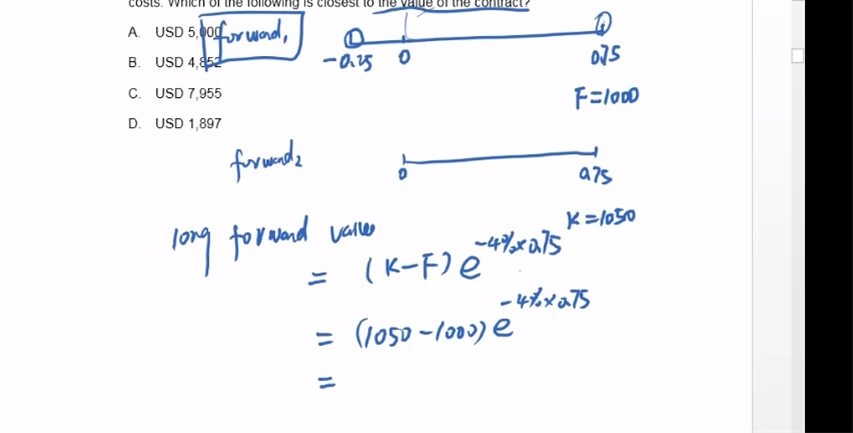 costs. Which of the following is closest to the value of the contract?
A. USD 5,000
forward,
B. USD 4,852
-0.25 0 0.75
C. USD 7,955
F=1000
D. USD 1,897
forward2
0 0.75
K=1050
long forward value
= (K-F) e -4%×0.75
= (1050-1000) e -4%×0.75
=